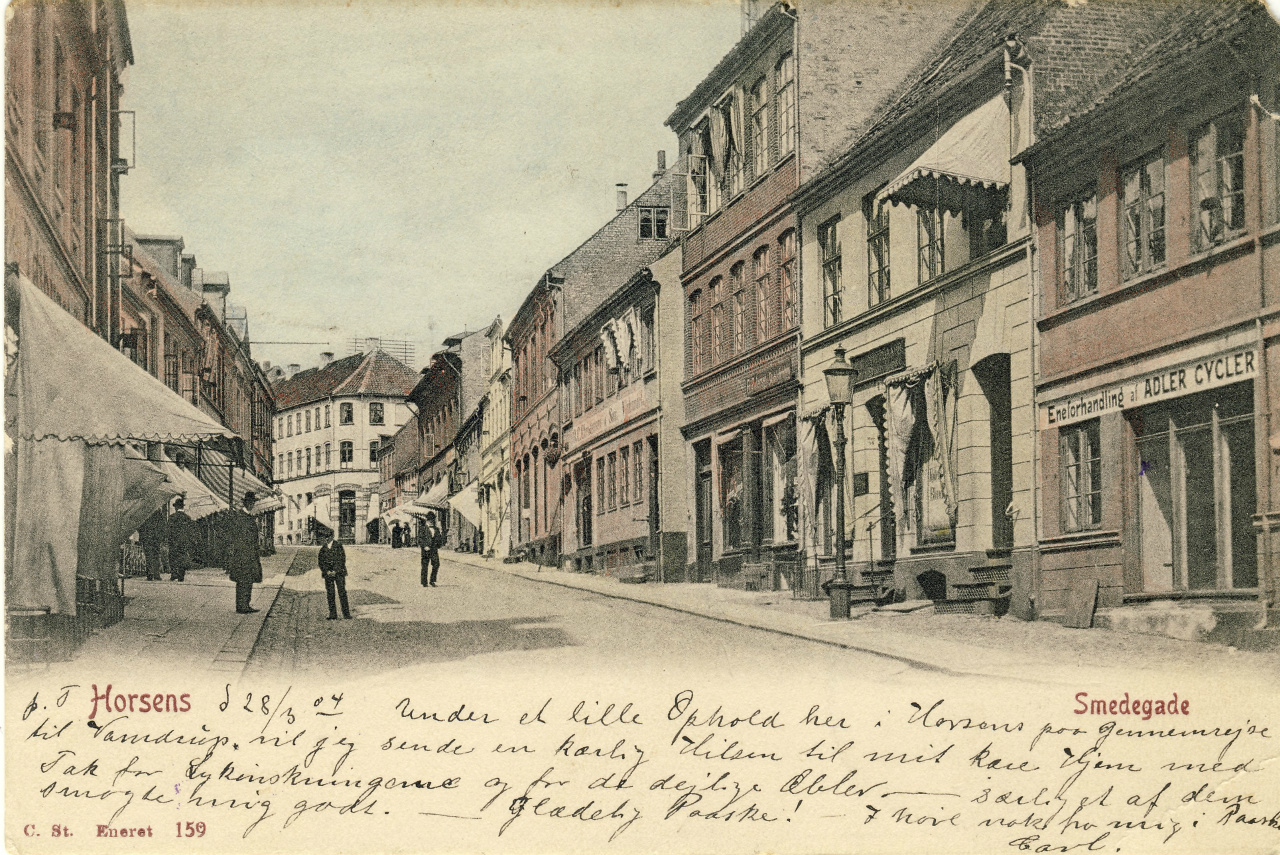 Eneforhandling af ADLER CYCLER
p. T Horsens d 28/3 04 Under et lille Ophold her i Horsens paa Gennemrejse
Smedegade
til Vamdrup, vil jeg sende en kærlig Hilsen til mit kære Hjem med
Tak for Lykønskningerne og for de dejlige Æbler — særligt af dem
smagte mig godt. — Glædelig Paaske! — I hører nok fra mig i Paasken
Carl.
C. St. Eneret 159